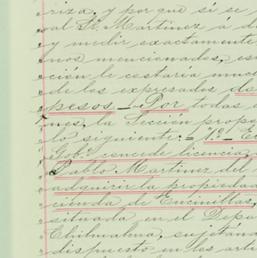 riza, y por que si se
al Sr. Martinez á d
y medir exactamente
nos mencionados, es
ción le costaria muc
de los expresados do
pesos — Por todas
nes, la Sección propo
lo siguiente: = "1ª E
Gobº concede licencia
Pablo Martinez del
adquirir la propiedad
cienda de Encinillas,
situada en el Depa
Chihuahua, sujetán
dispuesto en los art